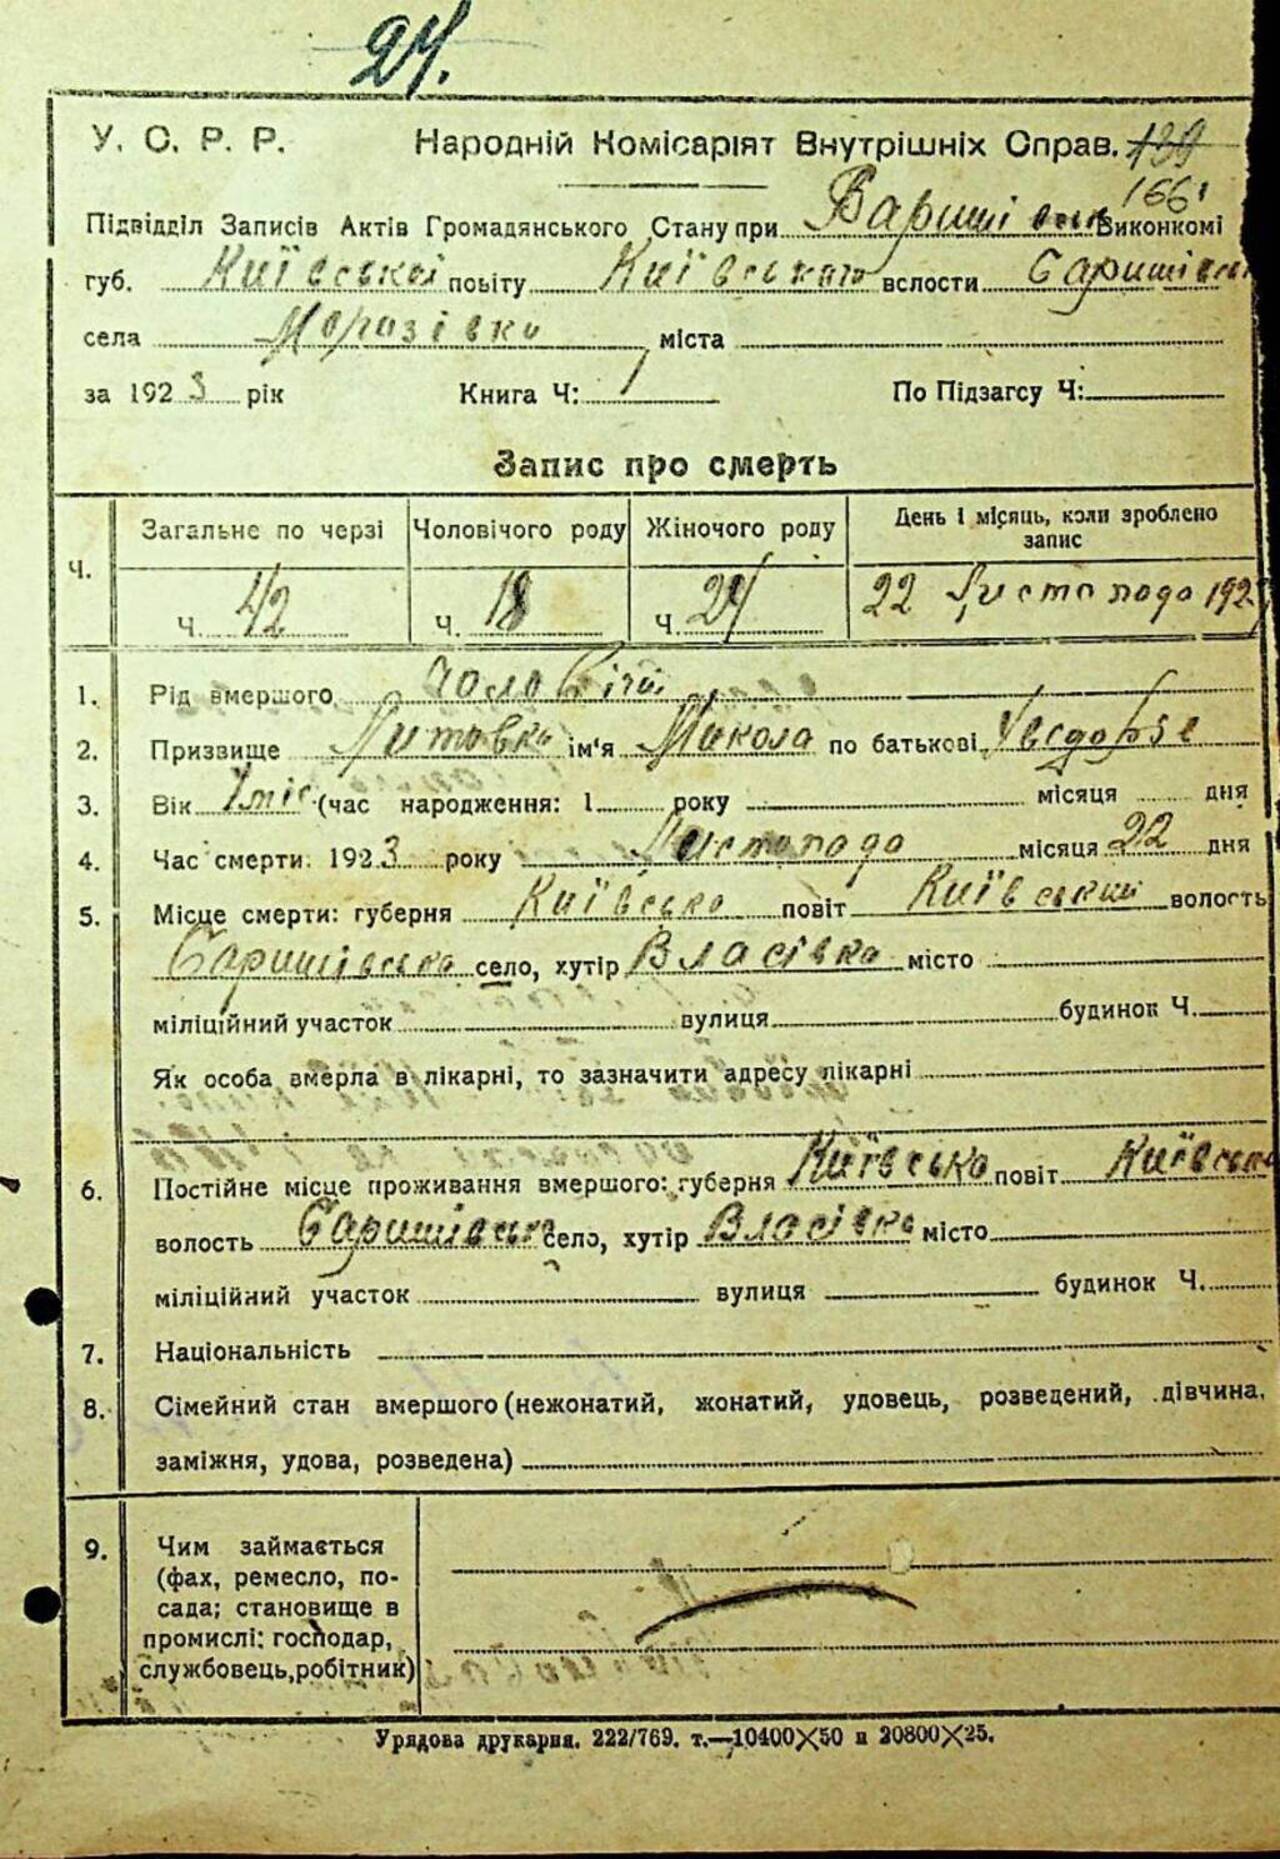 24.
У. С. Р. Р. Народній Комісаріят Внутрішніх Справ. 139
166
Підвідділ Записів Актів Громадянського Стану при Баришівськ Виконкомі
губ. Київської повіту Київського волости Баришівськ
села Морозівка міста
за 1923 рік Книга Ч: 1 По Підзагсу Ч:
Запис про смерть
Ч. Загальне по черзі Чоловічого роду Жіночого роду День і місяць, коли зроблено запис
Ч. 42 Ч. 18 Ч. 24 22 Листопада 192
1. Рід вмершого чоловічий
2. Призвище Литовка ім'я Микола по батькові
3. Вік 1 міс (час народження: 1 року місяця дня
4. Час смерти: 1923 року Листопада місяця 22 дня
5. Місце смерти: губерня Київська повіт Київський волость
Баришівська село, хутір Власівка місто
міліційний участок вулиця будинок Ч.
Як особа вмерла в лікарні, то зазначити адресу лікарні
6. Постійне місце проживання вмершого: губерня Київська повіт Київськ
волость Баришівськ село, хутір Власівка місто
міліційний участок вулиця будинок Ч.
7. Національність
8. Сімейний стан вмершого (нежонатий, жонатий, удовець, розведений, дівчина,
заміжня, удова, розведена)
9. Чим займається
(фах, ремесло, по-
сада; становище в
промислі: господар,
службовець, робітник)
Урядова друкарня. 222/769. т.—10400×50 и 20800×25.